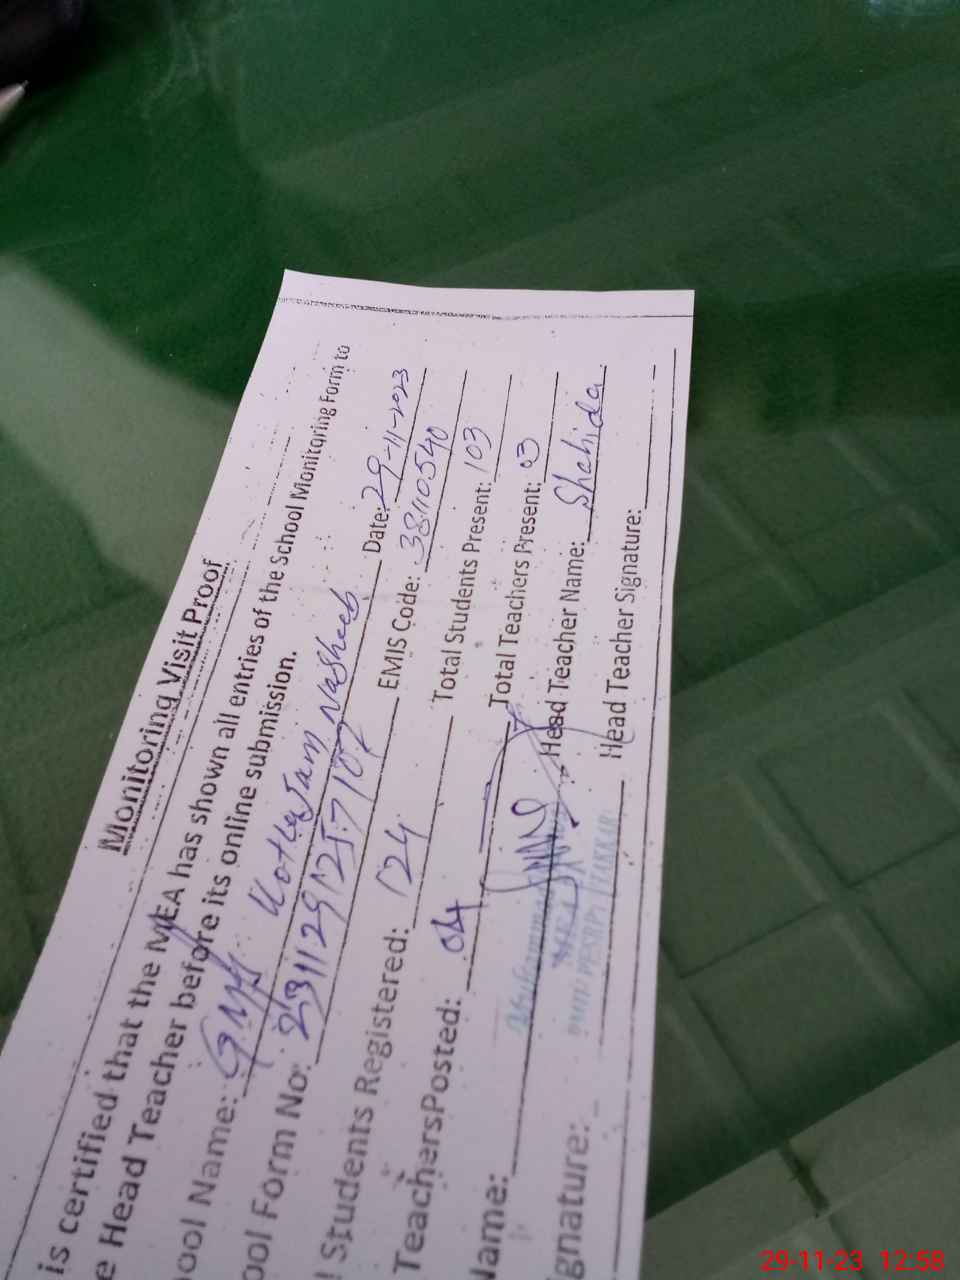 Monitoring Visit Proof
is certified that the MEA has shown all entries of the School Monitoring Form to
e Head Teacher before its online submission.
ool Name: GMPS Kotla Jam Nasheeb Date: 29-11-2023
ool Form No: EMIS Code: 38110540
l Students Registered: 124 Total Students Present: 103
TeachersPosted: 04 Total Teachers Present: 03
Name: Head Teacher Name: Shahida
gnature: Head Teacher Signature:
29-11-23 12:58